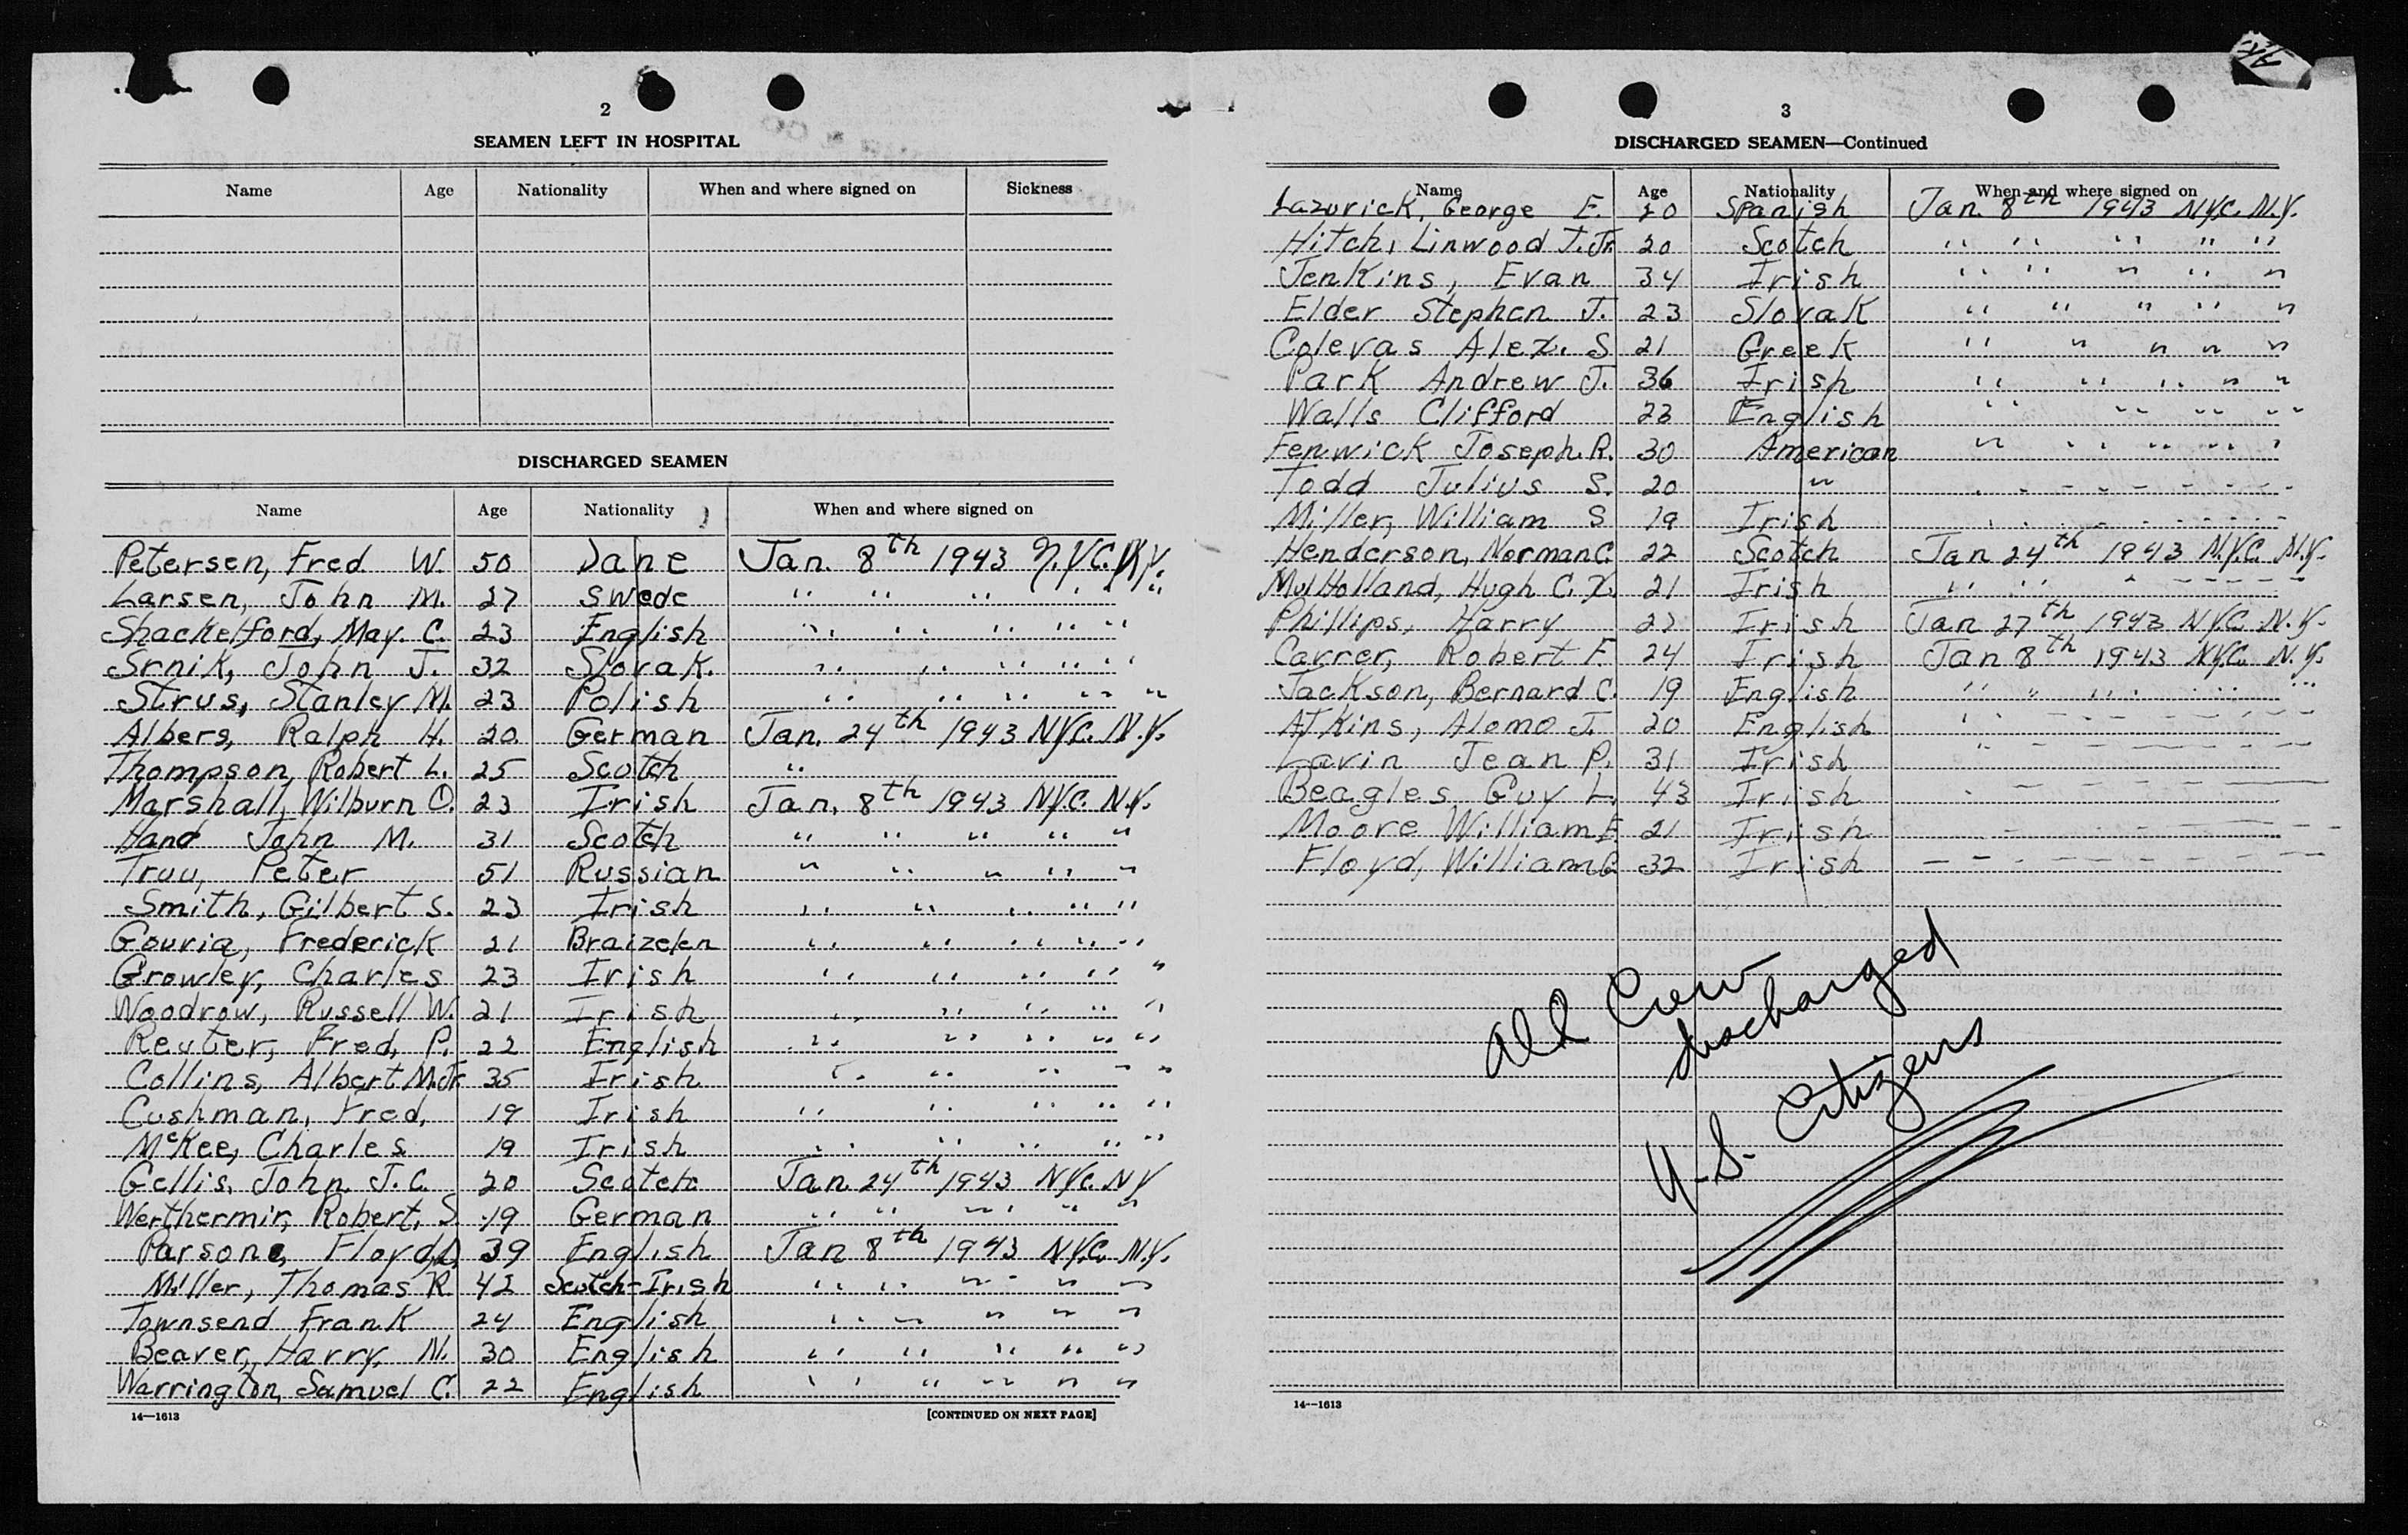 2
SEAMEN LEFT IN HOSPITAL
Name Age Nationality When and where signed on Sickness
DISCHARGED SEAMEN
Name Age Nationality When and where signed on
Petersen, Fred W. 50 Dane Jan. 8th 1943 N.Y.C. N.Y.
Larsen, John M. 27 Swede " " " " "
Shackelford, May. C. 23 English " " " " "
Srnik, John J. 32 Slovak. " " " " "
Strus, Stanley M. 23 Polish " " " " "
Albers, Ralph H. 20 German Jan. 24th 1943 N.Y.C. N.Y.
Thompson, Robert L. 25 Scotch "
Marshall, Wilburn O. 23 Irish Jan. 8th 1943 N.Y.C. N.Y.
Hand John M. 31 Scotch " " " " "
Truu, Peter 51 Russian " " " " "
Smith, Gilbert S. 23 Irish " " " " "
Gouria, Frederick 21 Braizelen " " " " "
Growley, Charles 23 Irish " " " " "
Woodrow, Russell W. 21 Irish " " " " "
Reuter, Fred, P. 22 English " " " " "
Collins, Albert M. Jr. 35 Irish " " " " "
Cushman, Fred, 19 Irish " " " " "
McKee, Charles 19 Irish " " " " "
Gellis, John J. C. 20 Scotch Jan 24th 1943 N.Y.C. N.Y
Werthermir, Robert, S. 19 German " " " " "
Parsons, Floyd D 39 English Jan 8th 1943 N.Y.C. N.Y.
Miller, Thomas R. 42 Scotch-Irish " " " " "
Townsend Frank 24 English " " " " "
Beaver, Harry, N. 30 English " " " " "
Warrington, Samuel C. 22 English " " " " "
14—1613 [CONTINUED ON NEXT PAGE]
3
DISCHARGED SEAMEN—Continued
Name Age Nationality When and where signed on
Lazurick, George E. 20 Spanish Jan. 8th 1943 N.Y.C. N.Y.
Hitch, Linwood T. Jr. 20 Scotch " " " " "
Jenkins, Evan 34 Irish " " " " "
Elder Stephen J. 23 Slovak " " " " "
Colevas Alex. S 21 Greek " " " " "
Park Andrew J. 36 Irish " " " " "
Walls Clifford 23 English " " " "
Fenwick Joseph R. 30 American " " " " "
Todd Julius S. 20 " - - - - - - - -
Miller, William S 19 Irish - - - - - - - -
Henderson, Norman C. 22 Scotch Jan 24th 1943 N.Y.C. N.Y.
MulHolland, Hugh C. X. 21 Irish " " " - - - - -
Phillips, Harry Irish Jan 27th 1943 N.Y.C. N.Y.
Carrer, Robert F. 24 Irish Jan 8th 1943 N.Y.C. N.Y.
Jackson, Bernard C. 19 English " " " " "
Atkins, Alomo J. 20 English " - - - - - -
Lavin Jean P. 31 Irish " - - - - - -
Beagles Guy L. 43 Irish - - - - - -
Moore William E. 21 Irish - - - - - - -
Floyd, William G. 32 Irish - - - - - - - -
All Crew
discharged
U.S. Citizens
14—1613